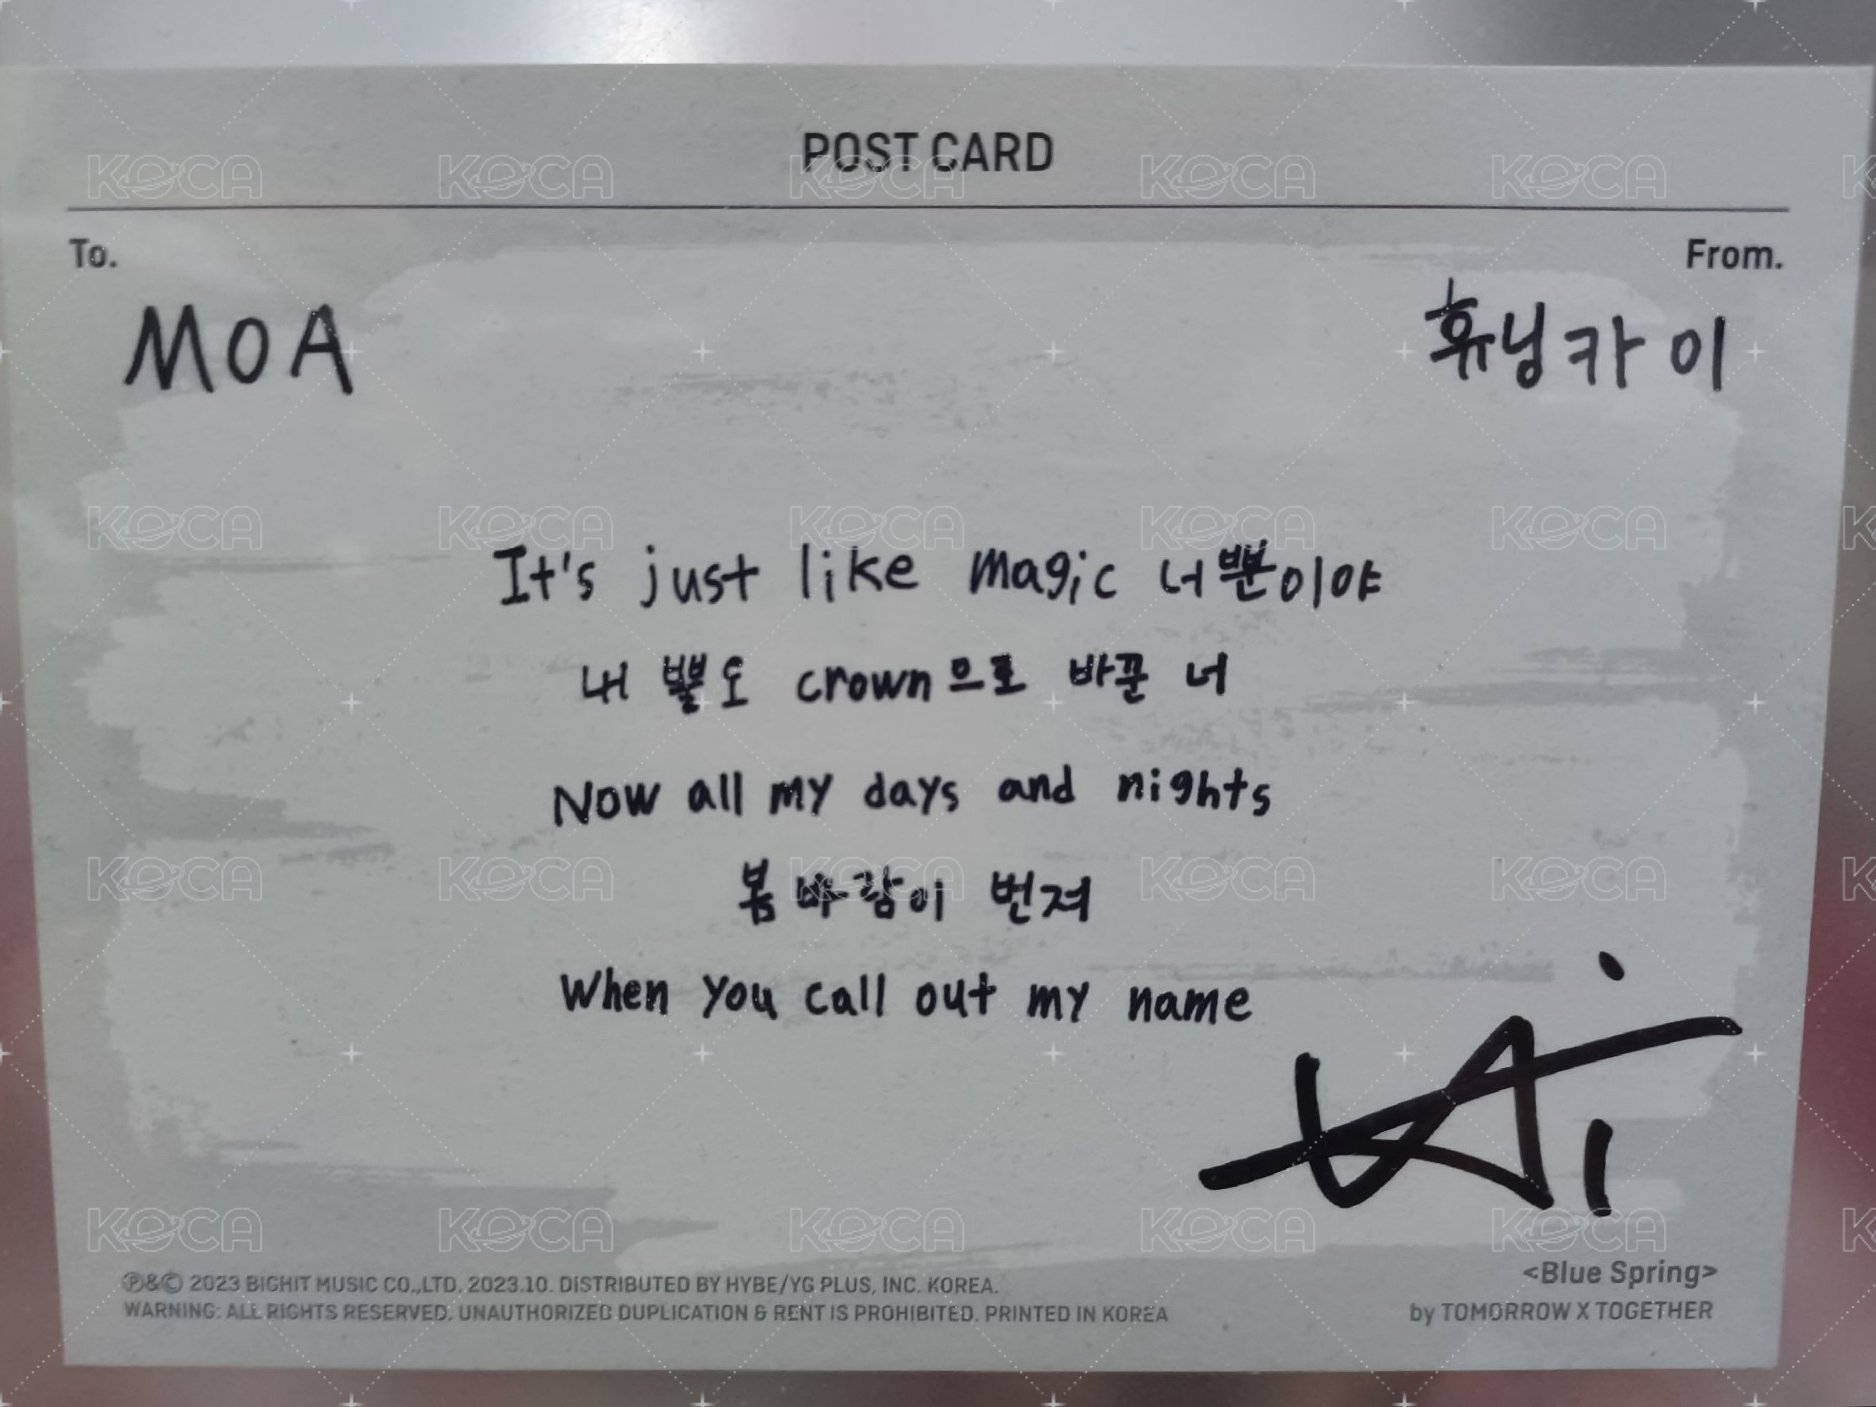 POST CARD
To.
From.
MOA
휴닝카이
It's just like magic 너뿐이야
내 뿔도 crown으로 바꾼 너
Now all my days and nights
봄 바람이 번져
When you call out my name
℗&© 2023 BIGHIT MUSIC CO.,LTD. 2023.10. DISTRIBUTED BY HYBE/YG PLUS, INC. KOREA.
WARNING: ALL RIGHTS RESERVED. UNAUTHORIZED DUPLICATION & RENT IS PROHIBITED. PRINTED IN KOREA
<Blue Spring>
by TOMORROW X TOGETHER
KOCA